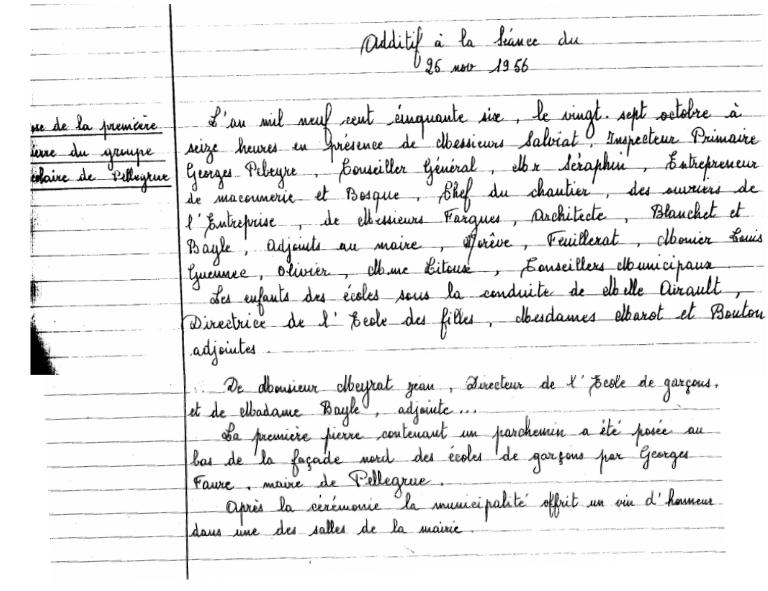 Additif à la Séance du
26 nov 1956
ose de la première
ierre du groupe
colaire de Pellegrue
L'an mil neuf cent cinquante six, le vingt-sept octobre à
seize heures en présence de Messieurs Salviat, Inspecteur Primaire
Georges Pebeyre, Conseiller Général, Mr Séraphin, Entrepreneur
de maçonnerie et Bosque, Chef du chantier, des ouvriers de
l'Entreprise, de Messieurs Fargues, Architecte, Blanchet et
Bayle, Adjoints au maire, Feuillerat, Monier Louis
Guennec, Olivier, Mme Litoux, Conseillers Municipaux
Les enfants des écoles sous la conduite de Melle Airault,
Directrice de l'Ecole des filles, Mesdames Marot et Bouton
adjointes.
De Monsieur Meyrat Jean, Directeur de l'Ecole de garçons,
et de Madame Bayle, adjointe...
La première pierre contenant un parchemin a été posée au
bas de la façade nord des écoles de garçons par Georges
Faure, maire de Pellegrue.
Après la cérémonie la municipalité offrit un vin d'honneur
dans une des salles de la mairie.